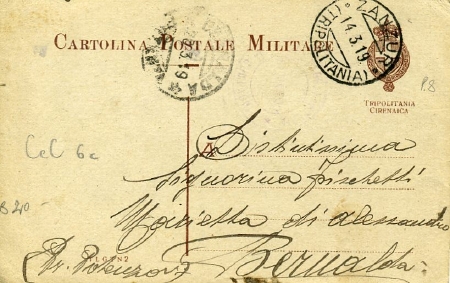 CARTOLINA POSTALE MILITARE
ZANZUR
14.3.19
(TRIPOLITANIA)
P.8
TRIPOLITANIA
CIRENAICA
CeC 6c
A Distintissima
Signorina Fischetti
B 20
Marietta di Alessandro
(Pr. Potenza) Bernalda